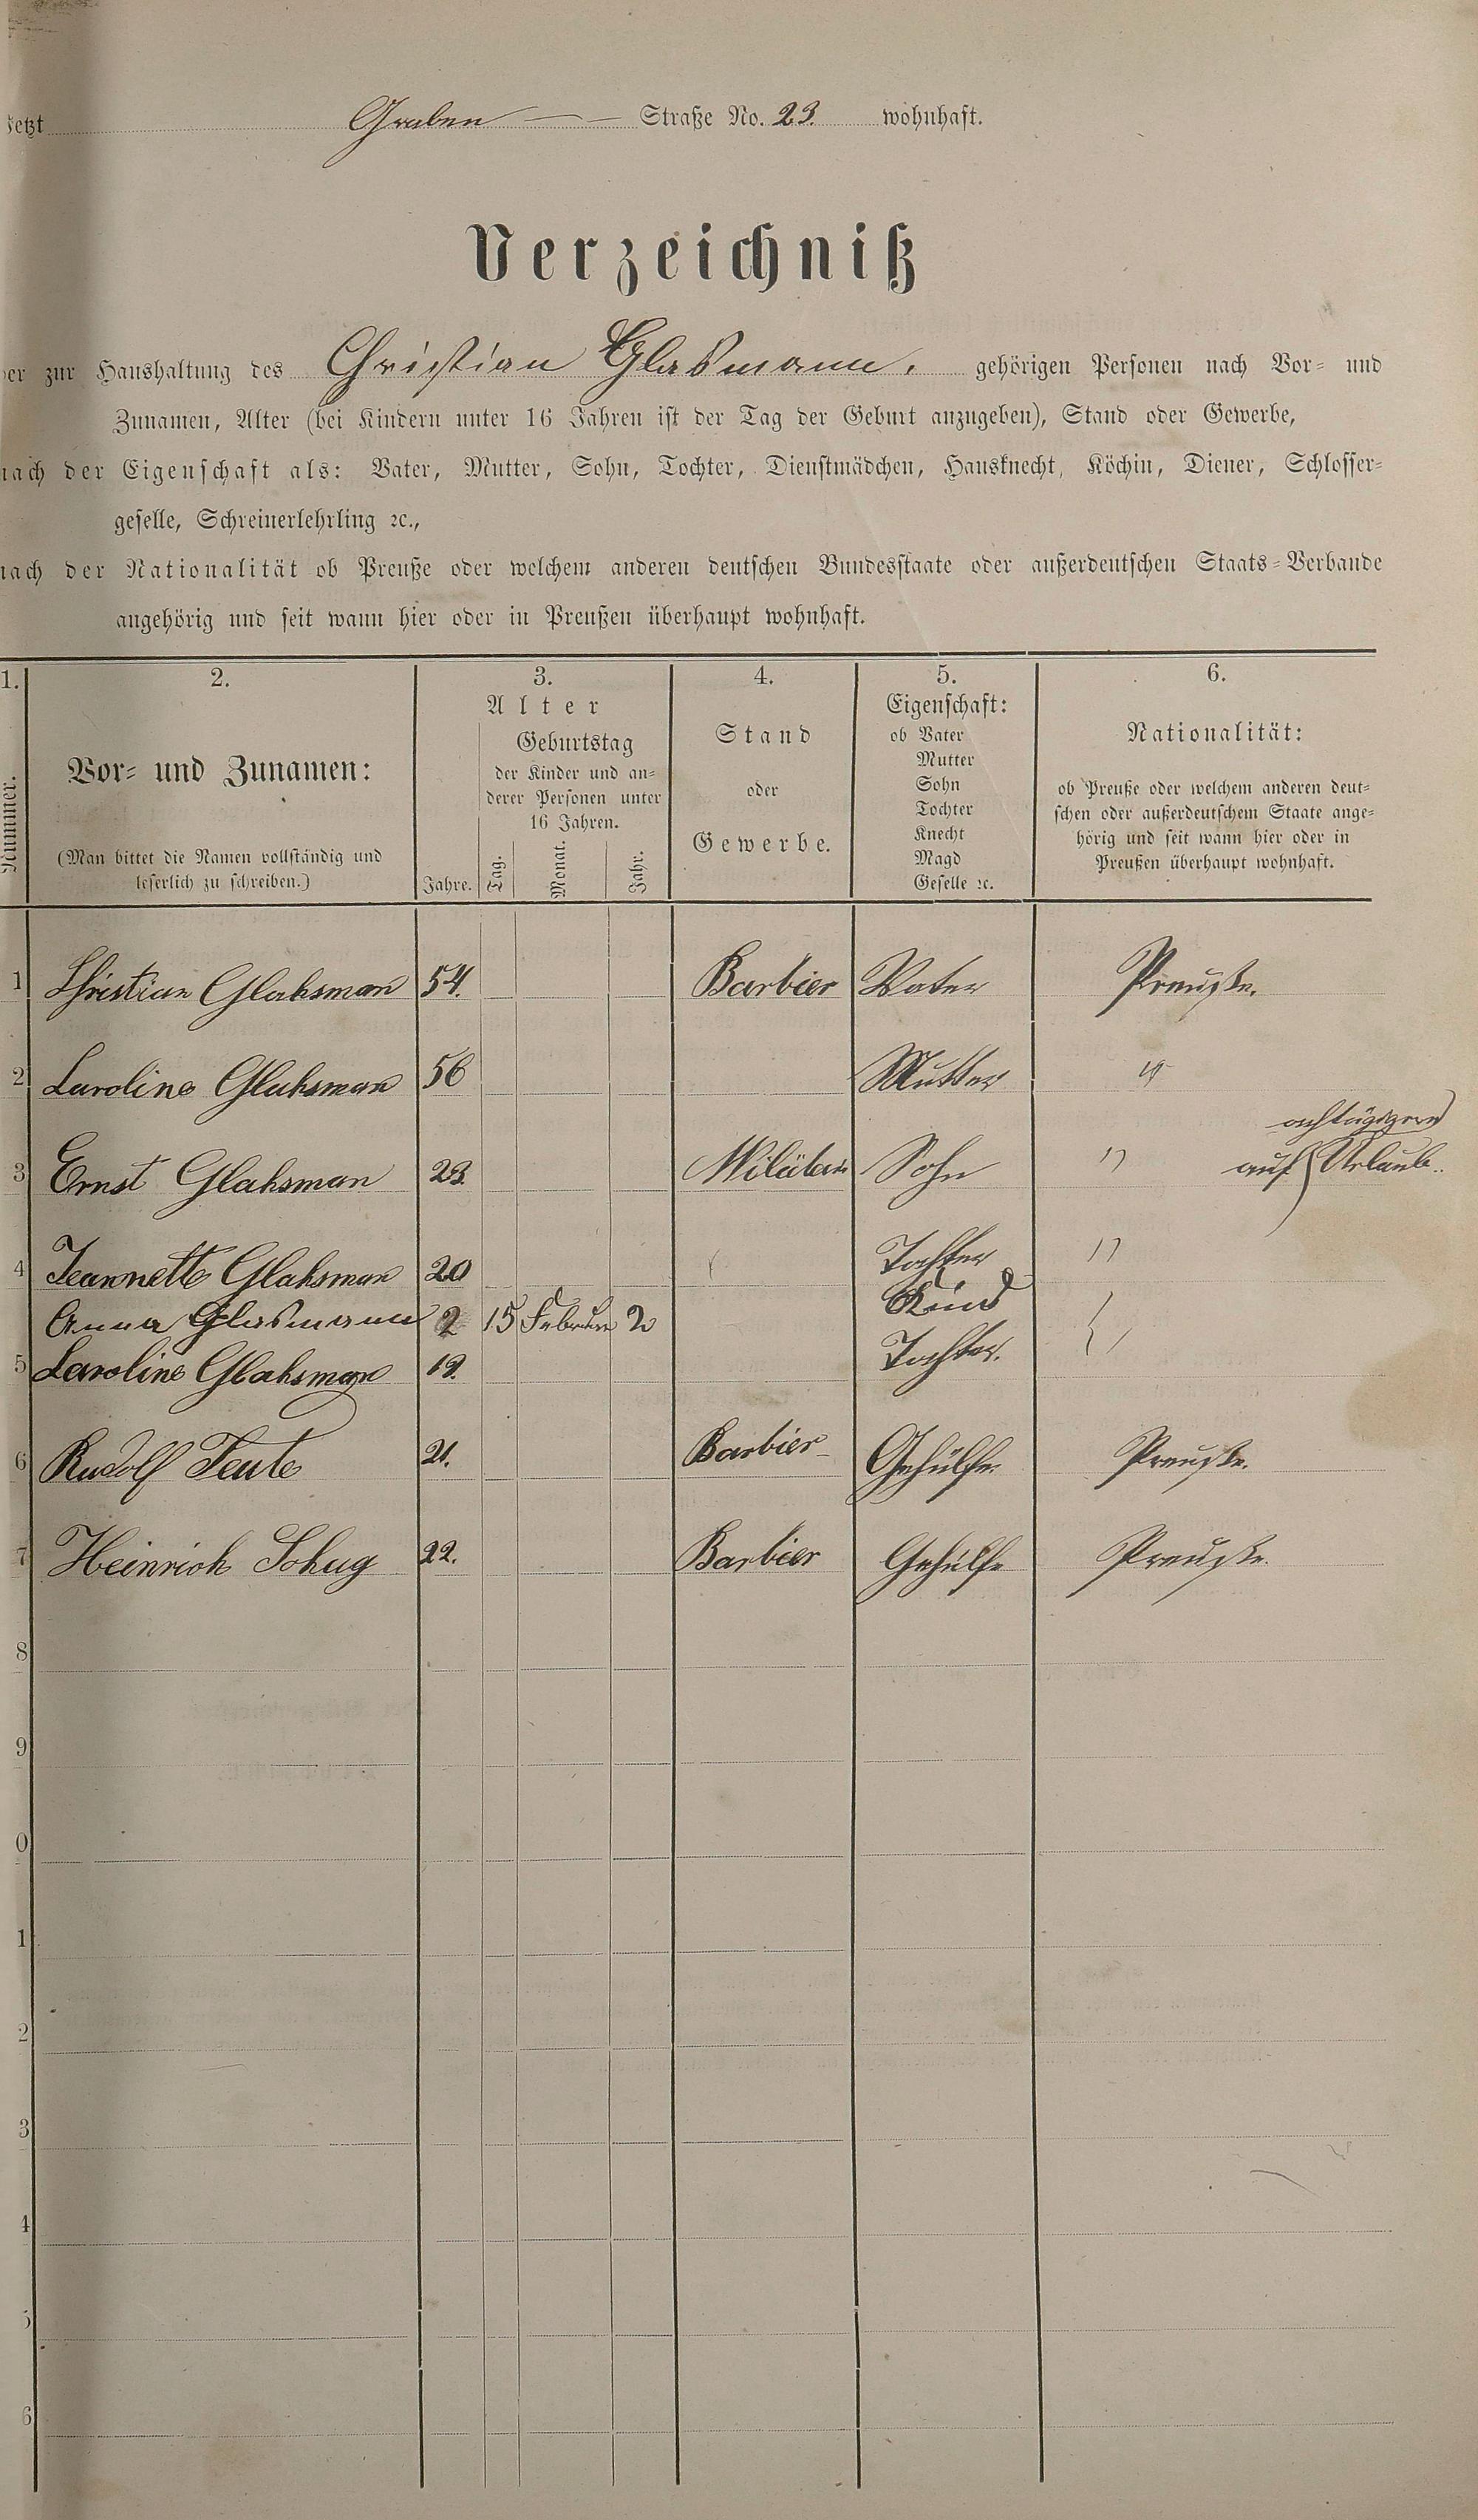 jetzt Graben — — Straße No. 23. wohnhaft.
Verzeichniß
der zur Haushaltung des Christian Glaßmann. gehörigen Personen nach Vor- und
Zunamen, Alter (bei Kindern unter 16 Jahren ist der Tag der Geburt anzugeben), Stand oder Gewerbe,
nach der Eigenschaft als: Vater, Mutter, Sohn, Tochter, Dienstmädchen, Hausknecht, Köchin, Diener, Schlosser-
geselle, Schreinerlehrling ꝛc.,
nach der Nationalität ob Preuße oder welchem anderen deutschen Bundesstaate oder außerdeutschen Staats-Verbande
angehörig und seit wann hier oder in Preußen überhaupt wohnhaft.
1. 2. 3. 4. 5. 6.
Nummer.
Vor- und Zunamen:
(Man bittet die Namen vollständig und
leserlich zu schreiben.)
Alter
Jahre.
Geburtstag
der Kinder und an-
derer Personen unter
16 Jahren.
Tag. Monat. Jahr.
Stand
oder
Gewerbe.
Eigenschaft:
ob Vater
Mutter
Sohn
Tochter
Knecht
Magd
Geselle ꝛc.
Nationalität:
ob Preuße oder welchem anderen deut-
schen oder außerdeutschem Staate ange-
hörig und seit wann hier oder in
Preußen überhaupt wohnhaft.
1 Christian Glahsman 54. Barbier Vater Preuße.
2 Caroline Glahsman 56 Mutter "
3 Ernst Glahsman 23. Militair Sohn " auf Urlaub.
4 Jeannette Glahsman 20 Tochter "
Anna Glaßmann 2 15 Februar 2 Kind
5 Caroline Glahsman 19. Tochter.
6 Rudolf Teute 21. Barbier Gehülfe Preuße.
7 Heinrich Schug 22. Barbier Gehülfe Preuße.
8
9
0
1
2
3
4
5
6